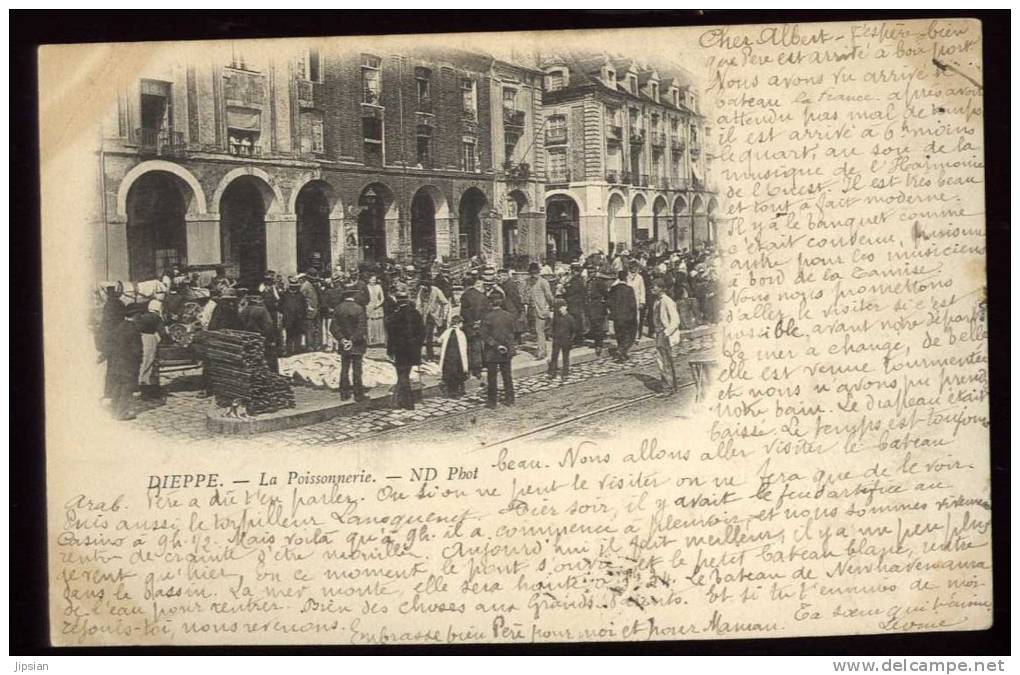 Cher Albert - J'espère bien
que Père est arrivé à bon port
Nous avons vu arrivé le
bateau la France. après avoir
attendu pas mal de temps
il est arrivé à 6h moins
le quart, au son de la
musique de l'Harmonie
de l'Ouest. Il est très beau
et tout à fait moderne.
Il y a le banquet comme
c'était convenu,
autre pour les musiciens
à bord de la Tamise.
Nous nous promettons
d'aller le visiter si c'est
possible, avant notre départ
La mer a change, de belle
elle est venue tourmentée
et nous n'avons pu prend
notre bain. Le drapeau était
baissé. Le temps est toujour
beau. Nous allons aller visiter le bateau
DIEPPE. — La Poissonnerie. — ND Phot
Arab. Père a dû t'en parler. Ou si on ne peut le visiter on ne fera que de le voir.
Puis aussi le torpilleur Lansquenet. Hier soir, il y avait le feu d'artifice au
Casino à 9h 1/2. Mais voilà qu'à 9h. il a commencé à pleuvoir, et nous sommes vivement
rentré de crainte d'être mouillés. Aujourd'hui il fait meilleur, il y a un peu plus
de vent qu'hier, en ce moment, le pont s'ouvre et le petit bateau blanc, rentre
dans le bassin. La mer monte, elle sera haute à Le bateau de Newhaven aura
de l'eau pour rentrer. Bien des choses aux Grands Parents. Et si tu t'ennuies de moi
réjouis-toi, nous revenons. Embrasse bien Père pour moi et pour Maman. Ta sœur qui t'aime
jipsian
http://www.delcampe.net